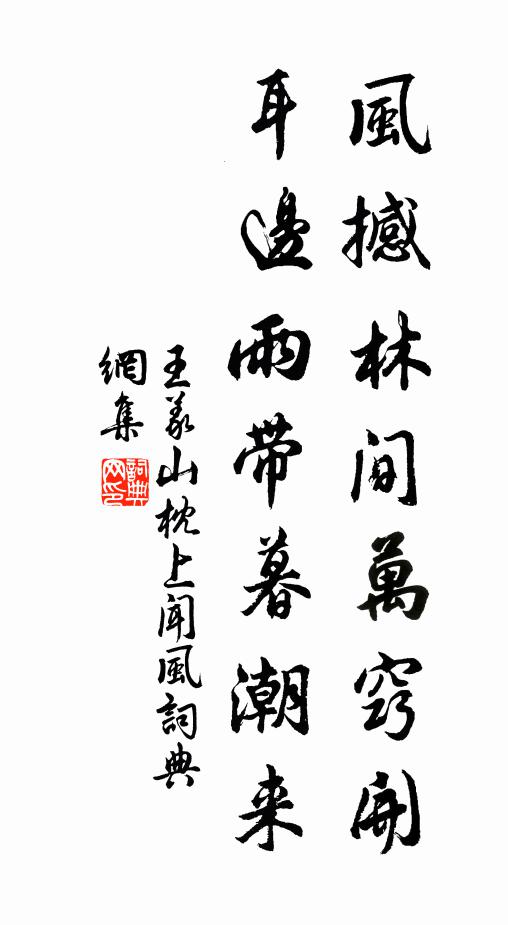 風撼林間萬竅開
耳邊雨帶暮潮来
王義山枕上聞風詞典
網集
詞典
网印